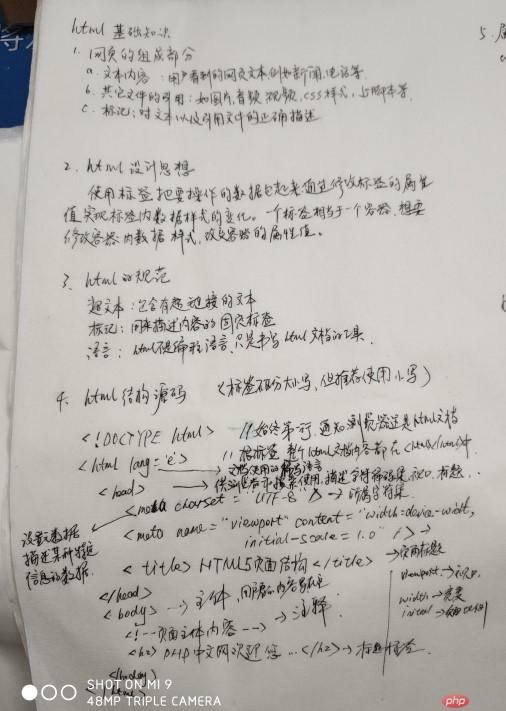 html 基础知识
1. 网页的组成部分
a. 文本内容:用户看到的网页文本,例如新闻、电话等
b. 其它文件的引用:如图片,音频,视频,css样式,js脚本等
c. 标记:对文本以及引用文件的正确描述
2. html 设计思想
使用标签把要操作的数据包起来通过修改标签的属性
值实现标签内数据样式的变化。一个标签相当于一个容器,想要
修改容器内数据样式,改变容器的属性值。
3. html的规范
超文本:包含有超链接的文本
标记:用来描述内容的网页标签
语言:html不是编程语言,只是书写html文档的工具
4. html结构源码 (标签不区分大小写,但推荐使用小写)
<!DOCTYPE html> //始终第一行,通知浏览器这是html文档
//根标签 整个html文档内容都在<html></html>中
<html lang='e'> → 文档使用的语言
<head> → 供浏览器和搜索使用,描述字符编码集,视口,标题..
<meta charset="UTF-8"> → 所属字符集
<meta name="viewport" content="width=device-width,
initial-scale=1.0" />
设置元数据
描述某种特定
信息的数据
<title>HTML5页面结构</title> → 页面标题
viewport → 视口
width → 宽度
</head>
<body> → 主体,
<!--页面主体内容--> → 注释
<h2>PHP中文网欢迎您...</h2> → 标题标签
</body>
</html>
SHOT ON MI 9
48MP TRIPLE CAMERA
php
5.